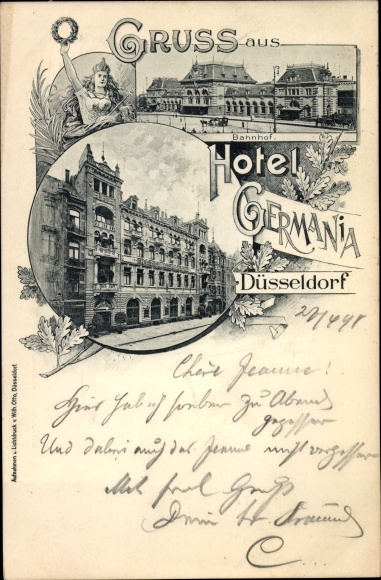 GRUSS aus
Bahnhof.
Hotel
GERMANIA
Düsseldorf
27/4 98
Chère Jeanne!
Hier hab ich soeben zu Abend
gegessen
Und dabei auch das Jeanne nicht vergessen
Mit frdl Gruß
Dein tr Freund
C
Aufnahmen u. Lichtdruck v. Wilh. Otto, Düsseldorf.